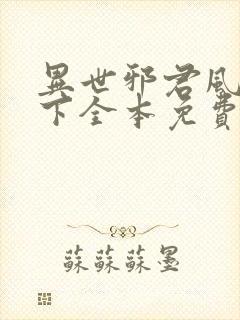 異世邪君風
下全本免費
蘇蘇蘇墨